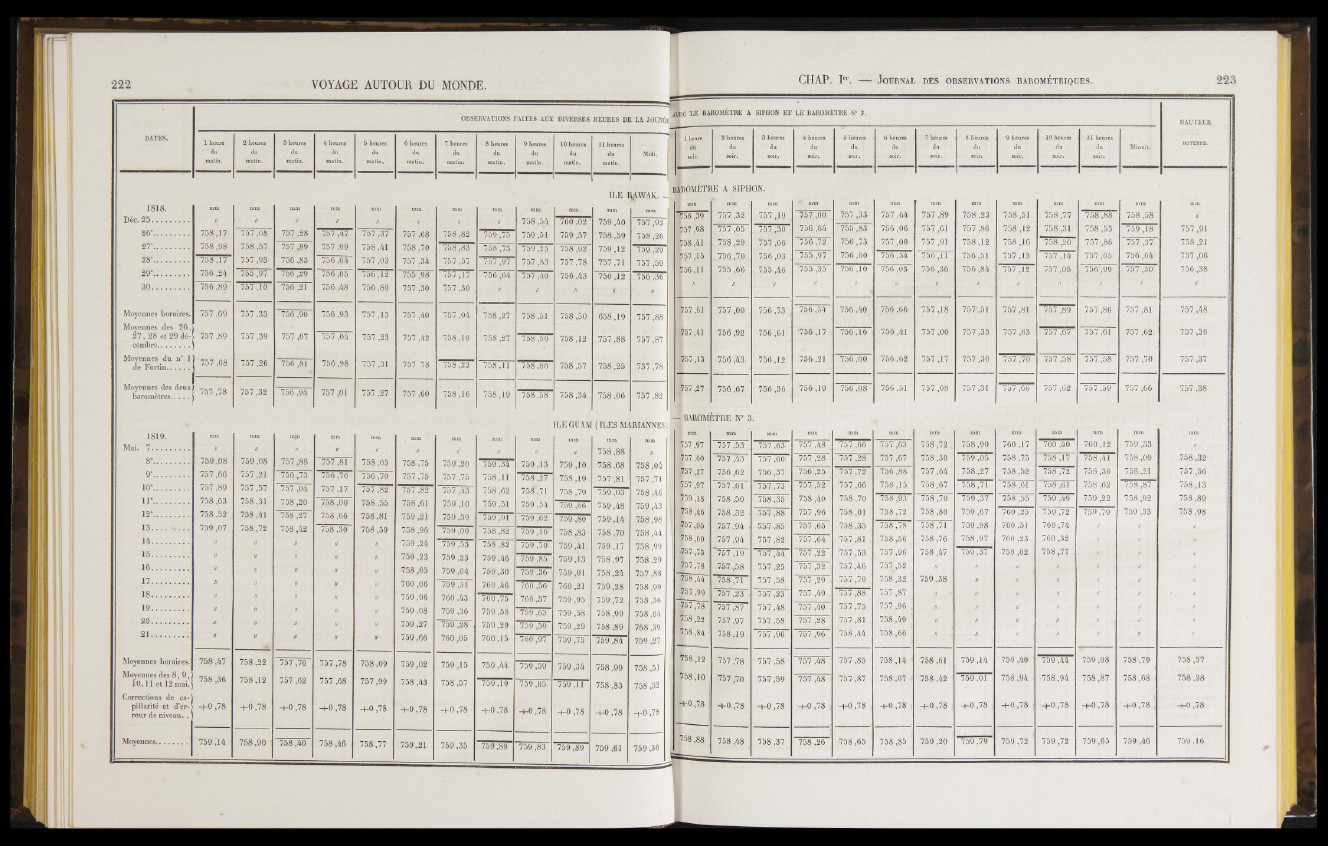 222 VOYAGE AUTOUR DU MONDE.
OBSERVATIONS FAITES AUX DIVERSES HEURES DE LA JOURNÉE
DATES.
1 heure du matin. 2 heures du matin. 3 heures du matin. 4 heures du matin. 5 heures du matin. 6 heures du matin. 7 heures du matin. 8 heures du matin. 9 heures du matin. 10 heures du matin. 11 heures du matin. Midi.
ILE RAWAK. —
1818. mm mm mm mm mm mm mm mm mm mm mm mm
Déc. 25......... 758 ,54 760 ,02 759 ,40 757 ,92
26e......... 758 ,17 757 ,08 757 ,28 757 ,47 757 ,37 757 ,68 758 ,82 759 ,75 759 ,51 759 ,37 758 ,59 758 ,26
27e......... 758 ,98 758 ,57 757 ,89 757 ,99 758 ,41 758 ,70 758 ,83 758 ,75 759 ,25 758 ,92 759 ,12 759 ,29
28e......... 758 ,17 757 ,93 756 ,85 756 ,64 757 ,03 757 ,34 757 ,57 757 ,97 757 ,83 757 ,78 757 ,71 757 ,59
29e......... 756 ,24 755 ,97 756 ,29 756 ,05 756 ,12 755 ,98 757 ,17 756 ,64 757 ,40 756 ,43 756 ,12 756 ,36
30......... 756 ,89 757 ,10 756 ,21 756 ,48 756 ,80 757 ,30 757 ,30
Moyennes horaires. 757 ,69 757 ,33 756 ,90 756 ,93 757 ,15 757 ,40 757 ,94 758 ,27 758 ,51 758 ,50 658 ,19 757 ,88
Moyennes des 26, 27, 28 et 29 décembre........ 757 ,89 757 ,39 757 ,07 757 ,04 757 ,23 757 ,42 758 ,10 758 ,27 758 ,50 758 ,12 757 ,88 757 ,87
Moyennes du n° 1 de Fortin...... 757 ,68 757 ,26 756 ,81 756 ,98 757 ,31 757 78 758 ,23 758 ,11 758 ,66 758 ,57 758 ,25 757 ,78
Moyennes des deux baromètres..... 757 ,78 757 ,32 756 ,94 757 ,01 757 ,27 757 ,60 758 ,16 758 ,19 758 ,58 758 ,34 758 ,06 757 ,82
ILE GUAM (ILES MARIANNES)
1819. mm mm mm mm mm mm mm mm mm mm mm mm
Mai. 7......... 758 ,88
8e......... 759 ,08 759 ,08 757 ,88 757 ,81 758 ,05 758 ,75 759 ,20 759 ,34 759 ,13 759 ,10 758 ,68 758 ,04
9e......... 757 ,66 757 ,21 756 ,75 756 ,76 756 ,70 757 ,75 757 ,75 758 ,11 758 ,27 758 ,19 757 ,81 757 ,71
10e......... 757 ,89 757 ,57 757 ,04 757 ,17 757 ,82 757 ,82 757 ,43 758 ,62 758 ,71 758 ,79 759 ,03 758 ,46
11e......... 758 ,63 758 ,31 758 ,20 758 ,00 758 ,55 758 ,61 759 ,10 759 ,51 759 ,54 759 ,66 759 ,48 759 ,43
12e......... 758 ,52 758 ,41 758 ,27 758 ,66 758 ,81 759 ,21 759 ,39 759 ,91 759 ,62 759 ,80 759 ,14 758 ,98
13......... 759 ,07 758 ,72 758 ,42 758 ,30 758 ,59 758 ,96 759 ,00 758 ,82 759 ,16 758 ,83 758 ,70 758 ,44
14......... 759 ,24 759 ,53 758 ,82 759 ,70 759 ,41 759 ,17 758 ,99
15......... 759 ,23 759 ,23 759 ,46 759 ,85 759 ,13 758 ,97 758 ,29
16......... 758 ,65 759 ,04 759 ,30 759 ,36 759 ,01 758 ,24 757 ,83
17......... 760 ,06 759 ,31 760 ,46 760 ,56 760 ,21 759 ,28 758 ,99
18......... 759 ,96 760 ,43 760 ,75 760 ,57 759 ,95 759 ,72 758 ,36
19......... 759 ,08 759 ,36 759 ,58 759 ,63 759 ,58 758 ,99 758 ,04
20......... 759 ,27 759 ,28 759 ,29 759 ,59 759 ,29 758 ,89 768 ,39
21......... 759 ,66 760 ,05 760 ,15 760 ,97 759 ,75 759 ,84 759 ,27
Moyennes horaires. 758 ,47 758 ,22 757 ,76 757 ,78 758 ,09 759 ,02 759 ,15 759 ,44 759 ,59 759 ,34 758 ,99 758 ,51
Moyennes des 8, 9, 10, 11 et 12 mai. 758 ,36 758 ,12 757 ,62 757 ,68 757 ,99 758 ,43 758 ,57 759 ,19 759 ,05 759 ,11 758 ,83 758 ,52
Corrections de capillarité et d'erreur de niveau.. +0 ,78 +0 ,78 +0 ,78 +0 ,78 +0 ,78 +0 ,78 +0 ,78 +0 ,78 +0 ,78 +0 ,78 +0 ,78 +0 ,78
Moyennes........ 759 ,14 758 ,90 758 ,40 758 ,46 758 ,77 759 ,21 759 ,35 759 ,88 759 ,83 759 ,89 759 ,61 759 ,30
CHAP. Ier. — JOURNAL DES OBSERVATIONS BAROMÉTRIQUES. 223
AVEC LE BAROMÈTRE A SIPHON ET LE BAROMÈTRE N° 3.
1 heure du soir. 2 heures du soir. 3 heures du soir. 4 heures du soir. 5 heures du soir. 6 heures du soir. 7 heures du soir. 8 heures du soir. 9 heures du soir. 10 heures du soir. 11 heures du soir. Minuit. HAUTEUR MOYENNE.
BAROMÈTRE A SIPHON.
mm mm mm mm mm mm mm mm mm mm mm mm mm
758 ,39 757 ,32 757 ,19 757 ,00 757 ,33 757 ,64 757 ,89 758 ,23 758 ,51 758 ,77 758 ,88 758 ,58
757 ,98 757 ,05 757 ,30 756 ,64 755 ,85 756 ,06 757 ,61 757 ,86 758 ,12 758 ,31 758 ,53 759 ,18 757 ,91
758 ,41 758 ,29 757 ,06 756 ,72 756 ,73 757 ,00 757 ,91 758 ,12 758 ,16 758 ,20 757 ,86 757 ,37 758 ,21
757 ,15 756 ,70 756 ,03 755 ,97 756 ,00 756 ,54 756 ,11 756 ,51 757 ,13 757 ,14 757 ,05 756 ,64 757 ,06
756 ,11 755 ,66 755 ,46 755 ,35 756 ,10 756 ,03 756 ,36 756 ,84 757 ,12 757 ,05 756 ,99 757 ,30 756 ,38
757 ,61 757 ,00 756 ,73 756 ,34 756 ,40 756 ,66 757 ,18 757 ,51 757 ,81 757 ,89 757 ,86 757 ,81 757 ,48
757 ,41 756 ,92 756 ,61 756 ,17 756 ,16 756 ,41 757 ,00 757 ,33 757 ,63 757 ,67 757 ,61 757 ,62 757 ,39
757 ,13 756 ,43 756 ,12 756 ,21 756 ,00 756 ,62 757 ,17 757 ,30 757 ,70 757 ,58 757 ,58 757 ,70 757 ,37
757 ,27 756 ,67 756 ,36 756 ,19 756 ,08 756 ,51 757 ,08 757 ,31 757 ,66 757 ,62 757 ,59 757 ,66 757 ,38
— BAROMÈTRE N° 3.
mm mm mm mm mm mm mm mm mm mm mm mm mm
757 ,97 757 ,53 757 ,63 757 ,48 757 ,66 757 ,63 758 ,72 758 ,90 760 ,17 760 ,40 760 ,12 759 ,33
757 ,60 757 ,53 757 ,60 757 ,28 757 ,28 757 ,67 758 ,30 759 ,05 758 ,75 758 ,17 758 ,41 758 ,09 758 ,32
757 ,27 756 ,62 756 ,37 756 ,25 757 ,72 756 ,88 757 ,64 758 ,27 758 ,52 758 ,72 758 ,30 758 ,21 757 ,56
757 ,97 757 ,61 757 ,73 757 ,52 757 ,66 758 ,15 758 ,67 758 ,71 758 ,61 758 ,61 758 ,62 758 ,87 758 ,13
759 ,18 758 ,50 758 ,35 758 ,40 758 ,70 758 ,93 758 ,70 759 ,37 758 ,55 759 ,49 759 ,22 758 ,92 758 ,89
758 ,46 758 ,32 757 ,88 757 ,96 758 ,01 758 ,72 758 ,80 759 ,67 760 ,25 759 ,72 759 ,79 759 ,33 758 ,98
757 ,95 757 ,94 757 ,85 757 ,65 758 ,35 758 ,78 758 ,71 759 ,98 760 ,51 760 ,74
758 ,60 757 ,94 757 ,82 757 ,64 757 ,81 758 ,56 758 ,76 758 ,97 760 ,23 760 ,32
757 ,73 757 ,19 757 ,44 757 ,22 757 ,53 757 ,96 758 ,47 759 ,37 759 ,02 758 ,77
757 ,78 757 ,58 757 ,25 757 ,32 757 ,46 757 ,52
758 ,44 758 ,71 757 ,58 757 ,29 757 ,70 758 ,32 759 ,38
757 ,99 757 ,23 757 ,23 757 ,49 757 ,88 757 ,87
757 ,78 757 ,87 757 ,48 757 ,40 757 ,75 757 ,96
758 ,22 757 ,97 757 ,58 757 ,28 757 ,81 758 ,49
758 ,84 758 ,19 757 ,96 757 ,96 758 ,44 758 ,66
758 ,12 757 ,78 757 ,58 757 ,48 757 ,85 758 ,14 758 ,61 759 ,14 759 ,40 759 ,44 759 ,08 758 ,79 758 ,57
758 ,10 757 ,70 757 ,59 757 ,48 757 ,87 758 ,07 758 ,42 759 ,01 758 ,94 758 ,94 758 ,87 758 ,68 758 ,38
+0 ,78 +0 ,78 +0 ,78 +0 ,78 +0 ,78 +0 ,78 +0 ,78 +0 ,78 +0 ,78 +0 ,78 +0 ,78 +0 ,78 +0 ,78
758 ,88 758 ,48 758 ,37 758 ,26 758 ,65 758 ,85 759 ,20 759 ,79 759 ,72 759 ,72 759 ,65 759 ,46 759 ,16